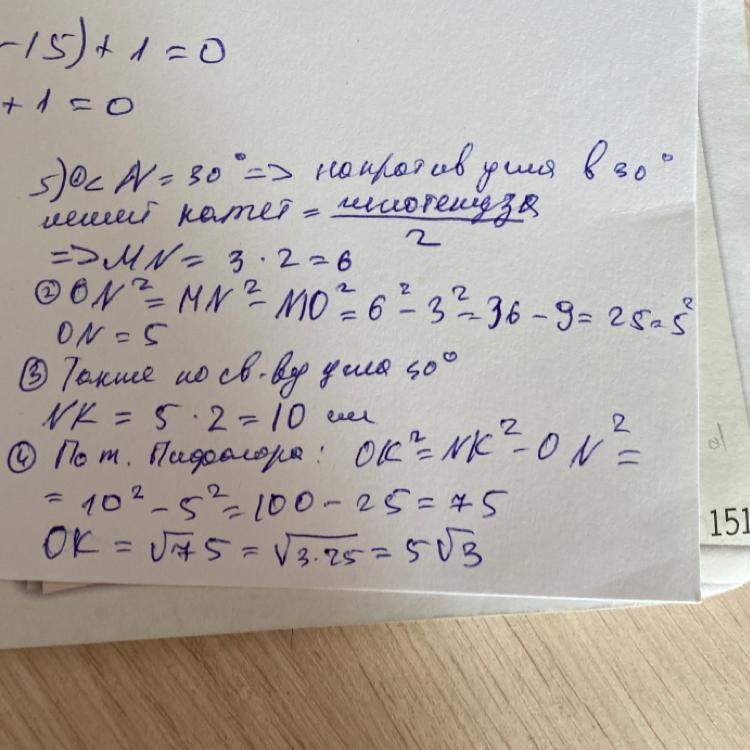 -15)+1=0
+1=0
5)① <N=30°=> напротив угла в 30°
лежит катет = гипотенуза
2
=>MN= 3·2=6
② ON²=MN²-MO²=6²-3²=36-9=25=5²
ON=5
③ Также по св-ву угла 30°
NK = 5·2=10 см
④ По т. Пифагора: OK²=NK²-ON²=
=10²-5²=100-25=75
OK = √75=√3·25=5√3
151